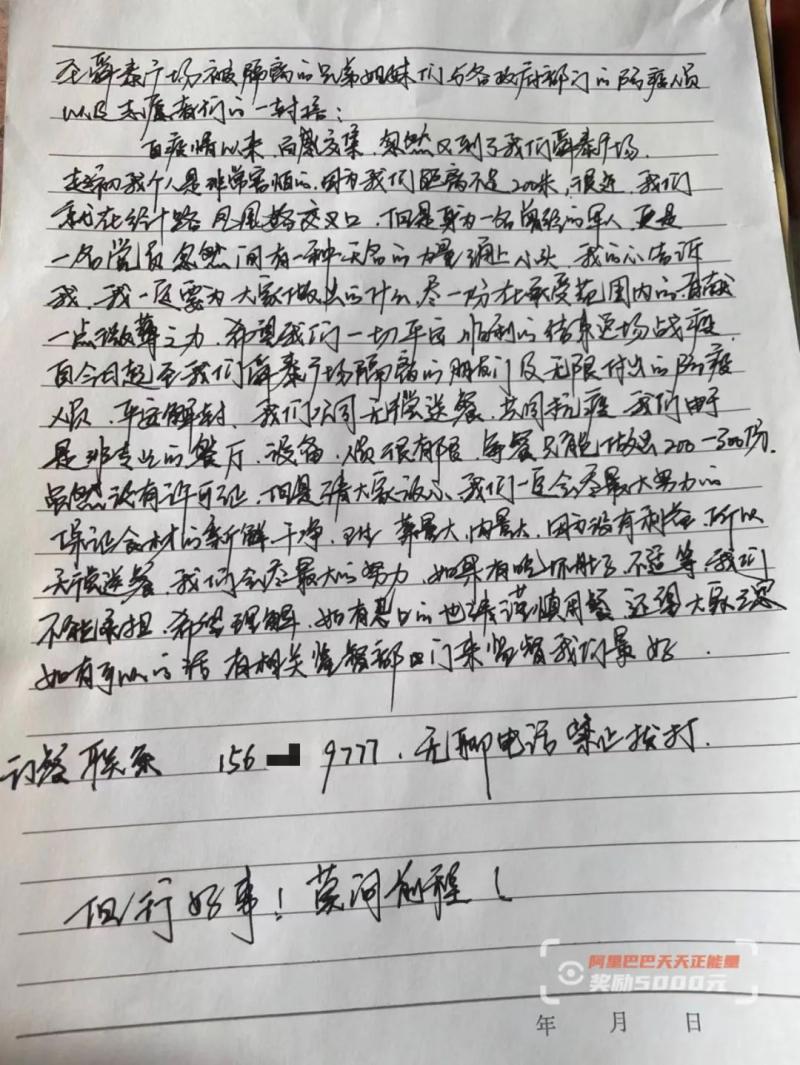 至舜泰广场被隔离的兄弟姐妹们与各政府部门的防疫人员
以及志愿者们的一封信:
自疫情以来,百感交集,忽然又到了我们舜泰广场,
起初我个人是非常害怕的,因为我们距离不足200米,很近,我们
就在经十路凤凰路交叉口,但是身为一名曾经的军人更是
一名党员忽然间有一种无名的力量涌上心头,我的心告诉
我,我一定要为大家做出的什么,尽一份在承受范围内的贡献
一点微薄之力,希望我们一切平安,顺利的结束这场战疫,
自今日起至我们舜泰广场隔离的朋友们及无限付出的防疫
人员,平安解封,我们公司无偿送餐,共同抗疫,我们由于
是非专业的餐厅,设备,人员很有限,每餐只能做出200-300份,
虽然没有许可证,但是请大家放心,我们一定会尽最大努力的
保证食材的新鲜,干净,卫生,菜量大,肉量大,因为没有利益,所以
无偿送餐,我们会尽最大的努力,如果有吃坏肚子,不适等我们
不能承担,希望理解,如有忌口的也请谨慎用餐,还望大家注意
如有可以的话有相关监督部门来监督我们最好.
订餐联系 156 9777,无聊电话禁止拨打.
但行好事!莫问前程!
阿里巴巴天天正能量
奖励5000元
年 月 日